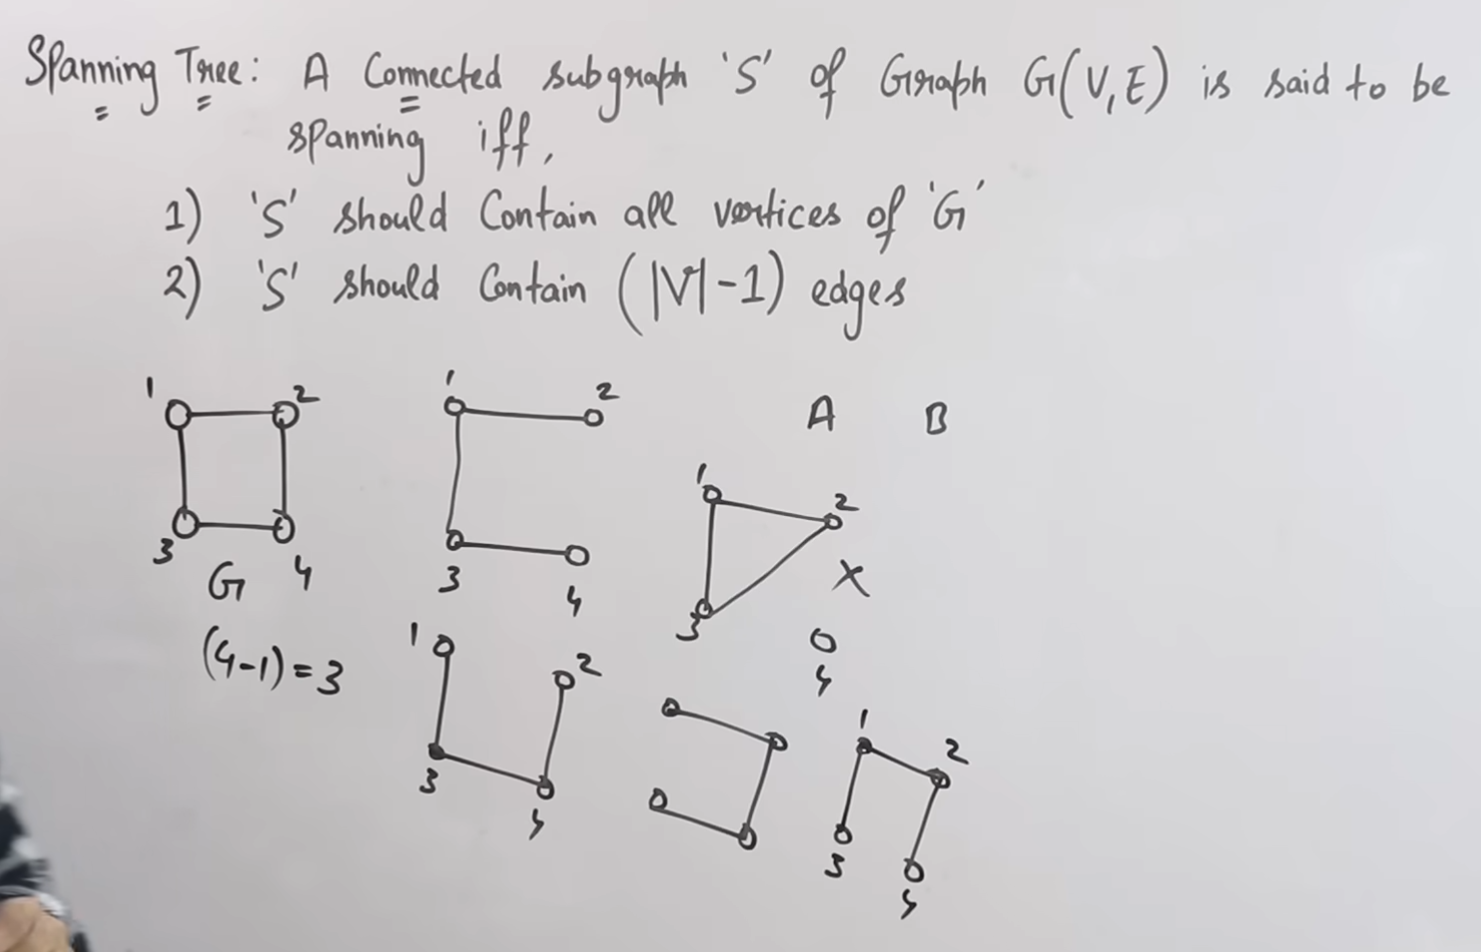 Spanning Tree: A Connected subgraph 'S' of Graph G(V,E) is said to be
spanning iff,
1) 'S' should Contain all vertices of 'G'
2) 'S' should Contain (|V|-1) edges
1 2
3 4
G
(4-1)=3
1 2
3 4
A B
1 2
3 X
4
1 2
3 4
1 2
3 4